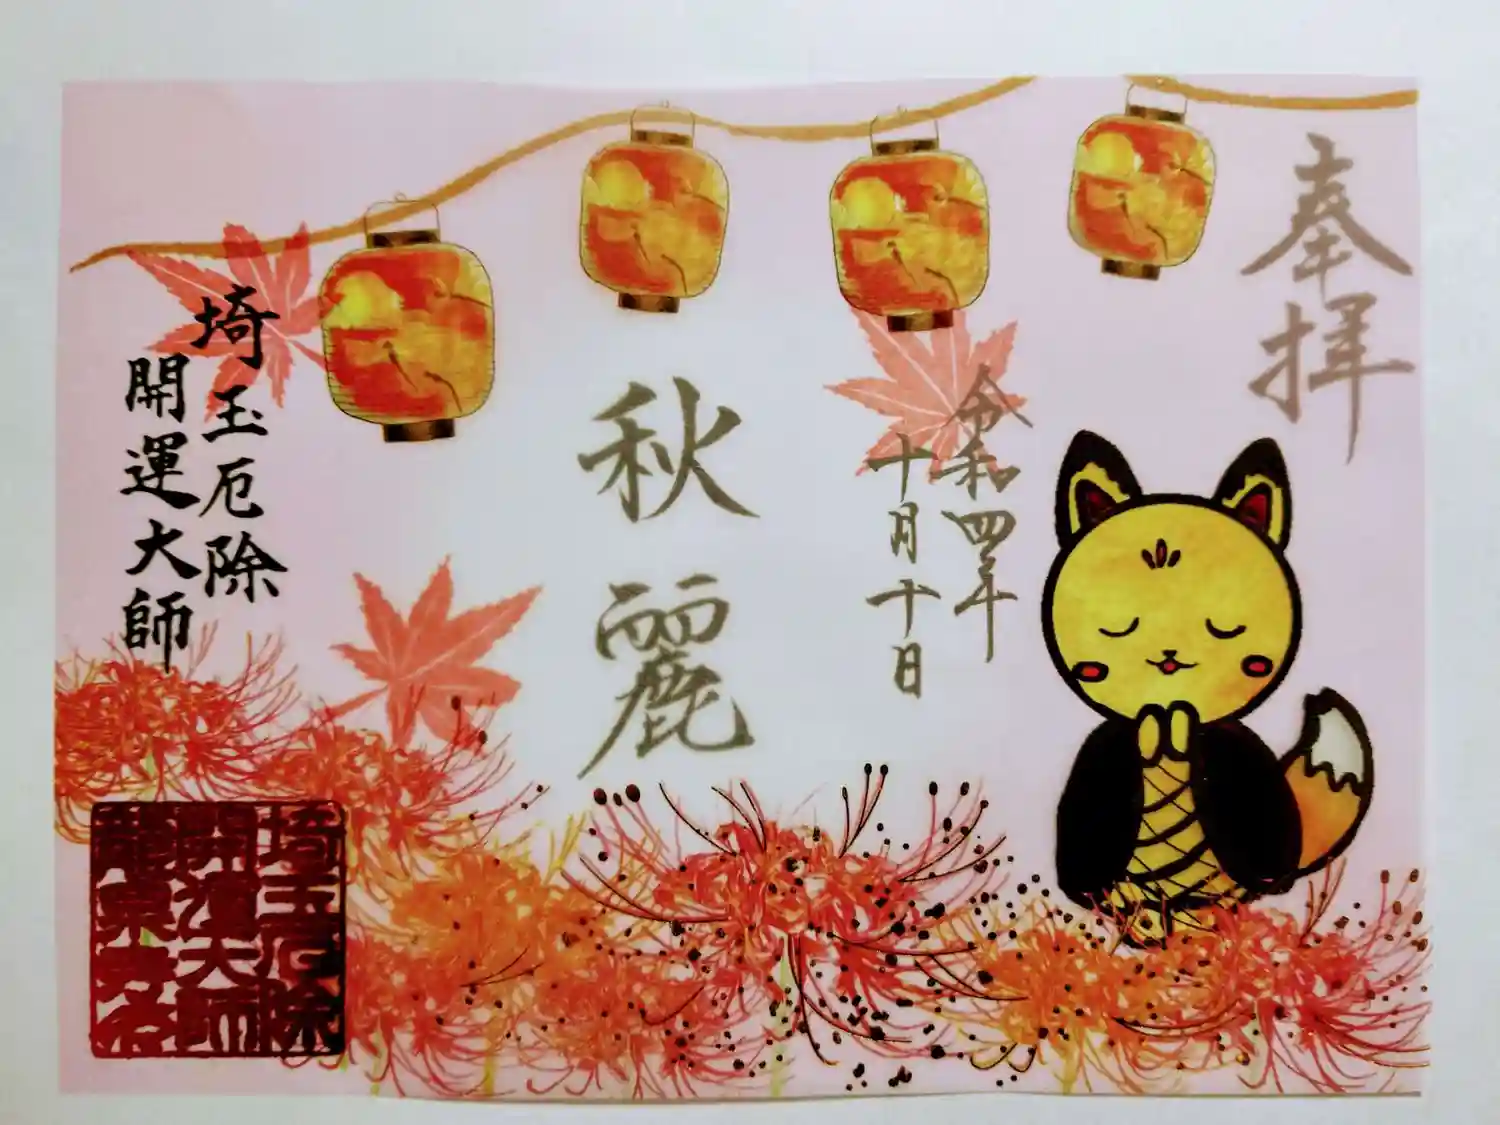 奉拝
令和四年
十月十日
秋麗
埼玉厄除
開運大師
埼玉厄除
開運大師